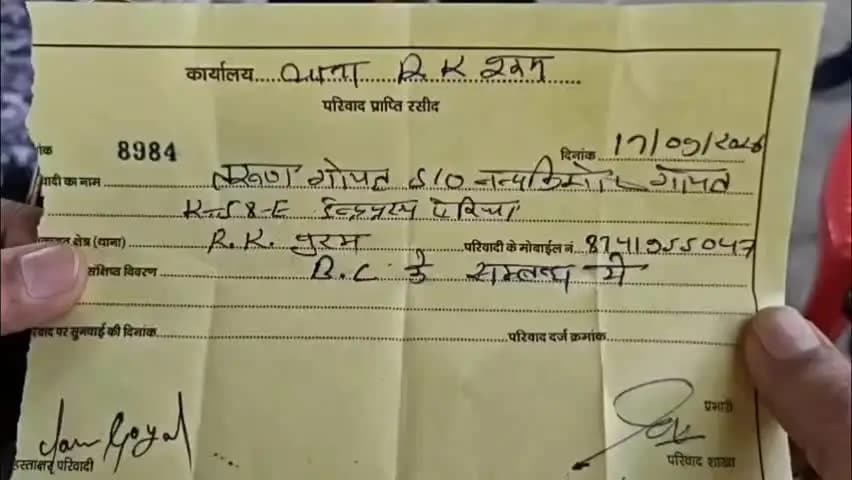 कार्यालय थाना R K पुरम
परिवाद प्राप्ति रसीद
8984 दिनांक 17/09/202
वादी का नाम तरूण गोयल S/O नन्दकिशोर गोयल
8-E इन्द्रप्रस्थ एरिया
क्षेत्र (थाना) R.K. पुरम परिवादी के मोबाईल नं. 8741955047
संक्षिप्त विवरण B.C के सम्बन्ध में
वाद पर सुनवाई की दिनांक परिवाद दर्ज क्रमांक
Goyal प्रभारी
हस्ताक्षर परिवादी परिवाद शाखा